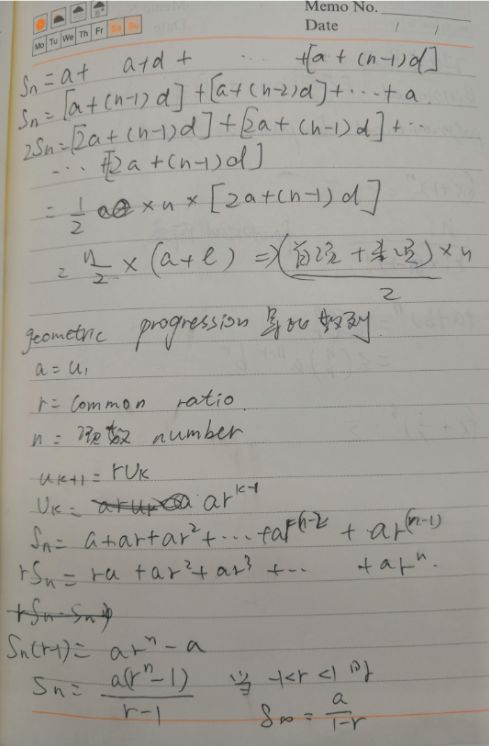 Memo No.
Mo Tu We Th Fr Sa Su
Date / /
Sn = a + a+d + +[a + (n-1)d]
Sn = [a+(n-1)d] + [a+(n-2)d] + ... + a
2Sn = [2a+(n-1)d] + [2a+(n-1)d] + ...
... +[2a+(n-1)d]
= 1/2 × n × [2a+(n-1)d]
= n/2 × (a+l) => (首项+末项)×n / 2
geometric progression 等比数列
a = u1
r = common ratio
n = 项数 number
uk+1 = ruk
Uk = ar^(k-1)
Sn = a+ar+ar^2+...+ar^(n-2) + ar^(n-1)
rSn = ra + ar^2 + ar^3 + ... + ar^n.
rSn - Sn
Sn(r-1) = ar^n - a
Sn = a(r^n-1) / r-1 当 -1<r<1 时
S∞ = a / 1-r